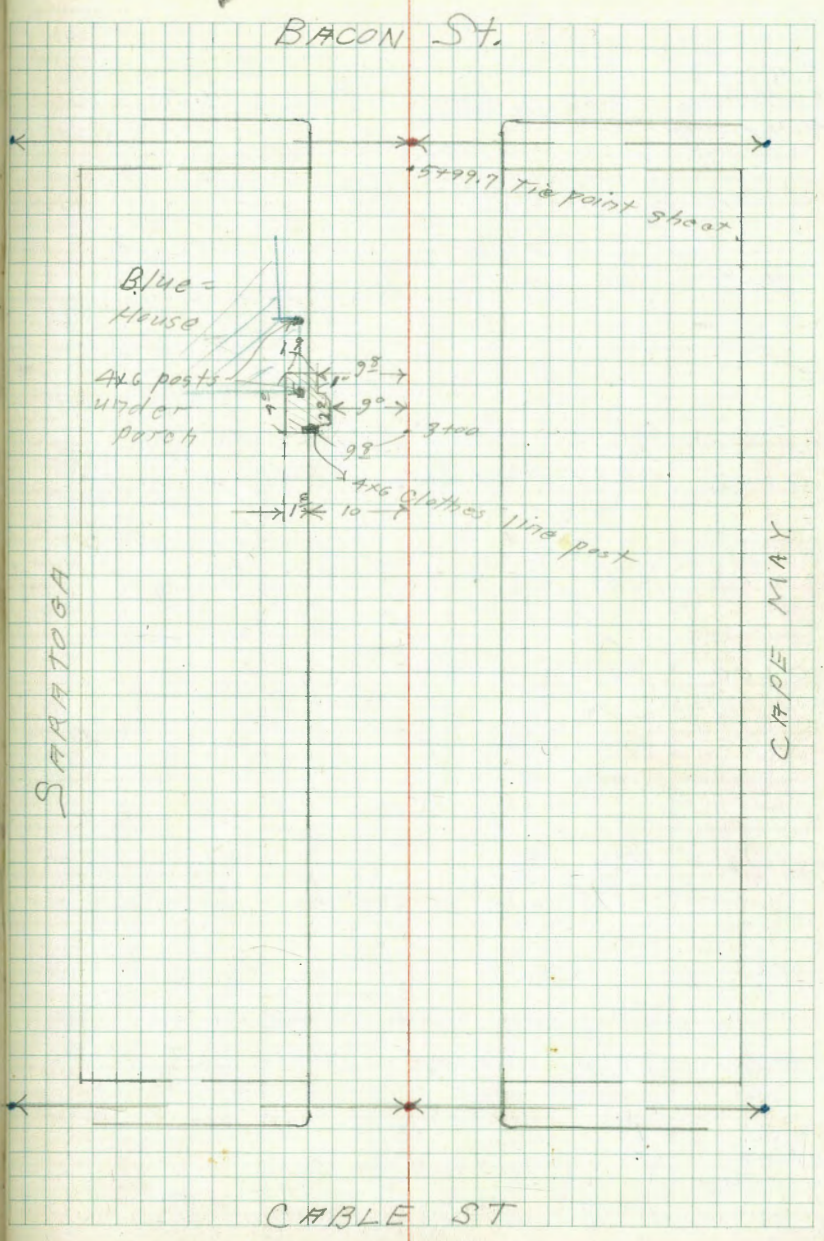 BACON St.
5+99.7 Tie point sheet
Blue =
House
4x6 posts
under
porch
9⁸
9⁰
3+00
9⁸
4x6 Clothes line post
10
SARATOGA
CAPE MAY
CABLE ST